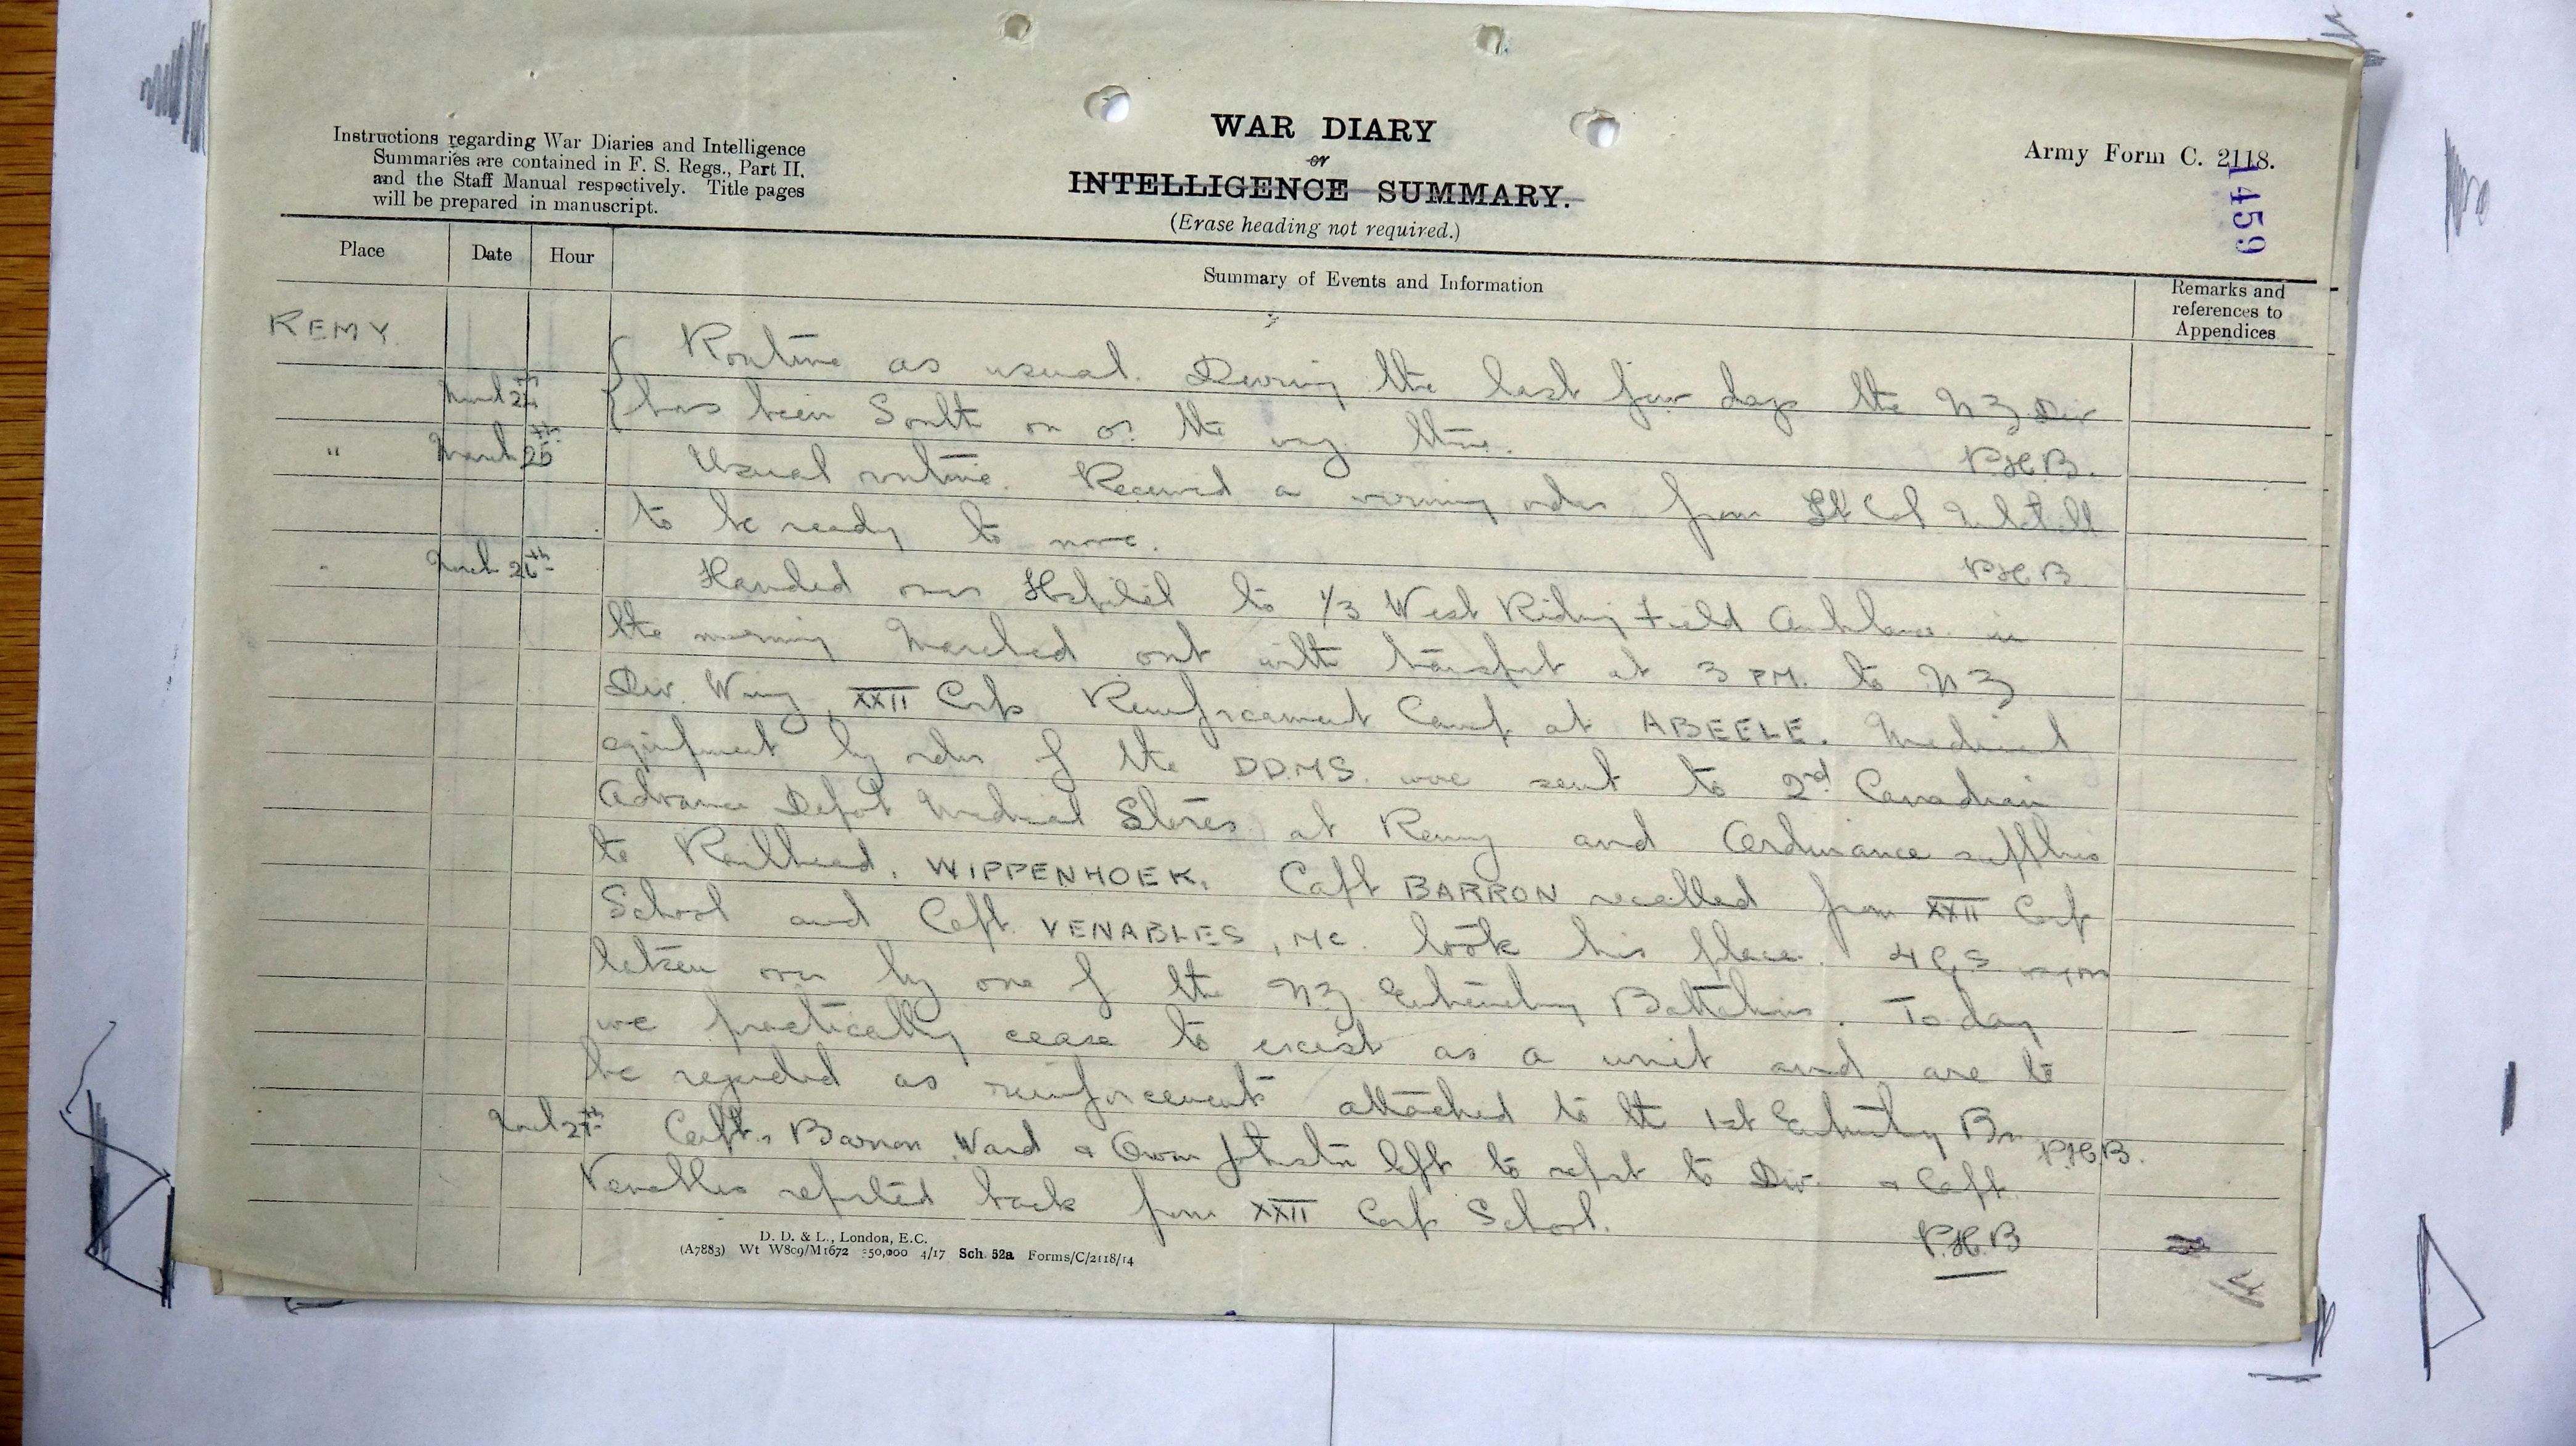 Instructions regarding War Diaries and Intelligence
Summaries are contained in F. S. Regs., Part II.
and the Staff Manual respectively. Title pages
will be prepared in manuscript.
WAR DIARY
or
INTELLIGENCE SUMMARY.
(Erase heading not required.)
Army Form C. 2118.
1459
Place
Date
Hour
Summary of Events and Information
Remarks and
references to
Appendices
REMY
Routine as usual. During the last few days the NZ Div
March 24th
has been South on or the way there.
P.H.B.
" March 25th
Usual routine. Received a warning order from Lt Col
to be ready to move.
P.H.B.
" March 26th
Handed over Hospital to 1/3 West Riding Field Ambulance in
the morning Marched out with transport at 3 PM. to NZ
Div. Wing XXII Corps Reinforcement Camp at ABEELE. Medical
equipment by order of the DDMS. were sent to 2nd Canadian
Advance Depot Medical Stores at Remy and Ordinance supplies
to Railhead, WIPPENHOEK. Capt BARRON recalled from XXII Corps
School and Capt. VENABLES, MC. took his place. 4 GS
taken over by one of the NZ Entrenching Battalions. Today
we practically cease to exist as a unit and are to
be regarded as reinforcements attached to the 1st Entrenching Bn
P.H.B.
March 27th
Capts. Barron Ward & Owen Johnston left to report to Div. & Capt
Venables reported back from XXII Corps School.
P.H.B
D. D. & L., London, E.C.
(A7883) Wt W809/M1672 350,000 4/17 Sch. 52a Forms/C/2118/14